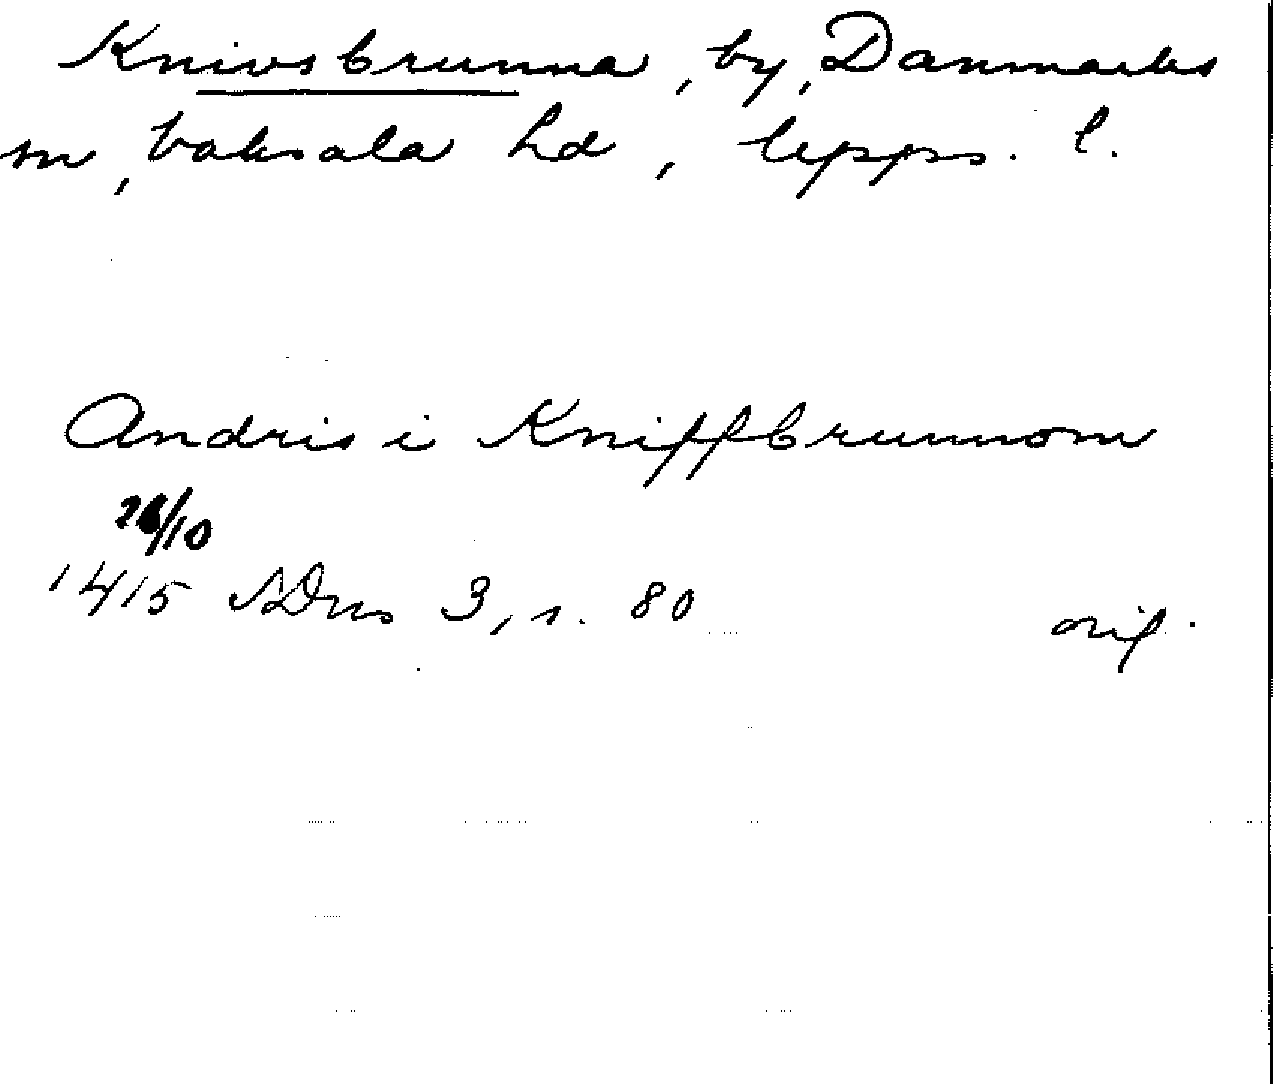 Knivsbrunna, by, Danmarks
sn, Vaksala hd, Upps. l.
Andris i Kniffbrunnom
/10
1415 SDns 3, s. 80
orig.